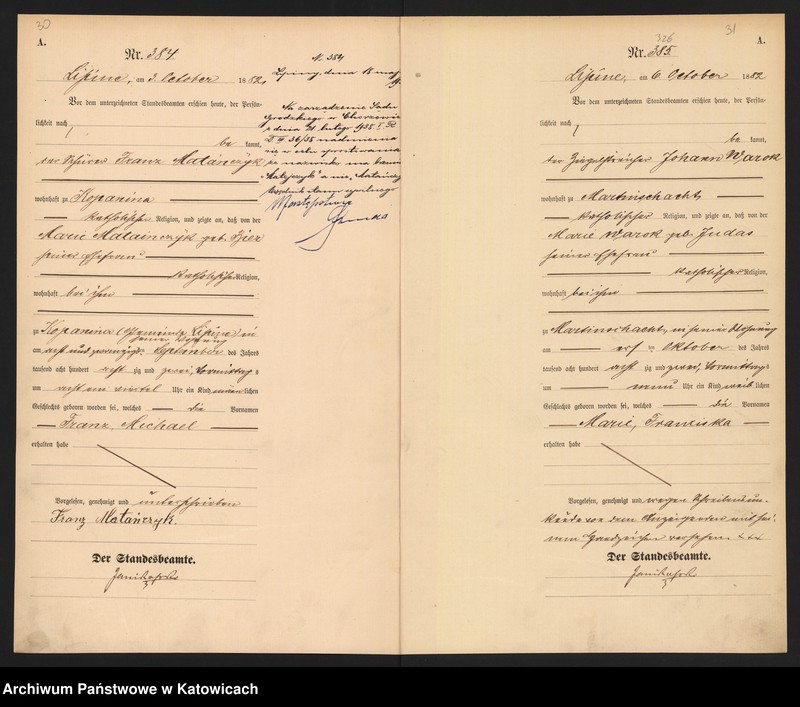 30
A.
Nr. 384.
Lipine, am 3. October 1882.
Vor dem unterzeichneten Standesbeamten erschien heute, der Persön-
lichkeit nach
be kannt,
der Franz Matainczyk
wohnhaft zu Kopanina
katholischer Religion, und zeigte an, daß von der
Marie Matainczyk geb.
seiner Ehefrau
katholischer Religion,
wohnhaft bei ihm
zu Kopanina (Gemeinde Lipine) in
seiner Wohnung
am acht und zwanzigsten September des Jahres
tausend acht hundert acht zig und zwei, Vormittags
um acht ein viertel Uhr ein Kind männ lichen
Geschlechts geboren worden sei, welches die Vornamen
Franz, Michael
erhalten habe
Vorgelesen, genehmigt und unterschrieben
Franz Matainczyk.
Der Standesbeamte.
N. 384
Lipiny, dnia 18 maj
Na zarządzenie Sądu
Grodzkiego w Chorzowie
z dnia 21 lutego 1938
nadmienia
się
że nazwisko ma
"Matejczyk" a nie
31
326
A.
Nr. 385.
Lipine, am 6. October 1882
Vor dem unterzeichneten Standesbeamten erschien heute, der Persön-
lichkeit nach
be kannt,
der Ziegelstreicher Johann Warok
wohnhaft zu Martinschacht
katholischer Religion, und zeigte an, daß von der
Marie Warok geb. Judas
seiner Ehefrau
katholischer Religion,
wohnhaft bei ihm
zu Martinschacht, in seiner Wohnung
am October des Jahres
tausend acht hundert acht zig und zwei, Vormittags
um neun Uhr ein Kind weib lichen
Geschlechts geboren worden sei, welches die Vornamen
Marie, Franciska
erhalten habe
Vorgelesen, genehmigt und wegen Schreibensun-
kunde von dem Anzeigenden mit sei-
nem Handzeichen versehen +++
Der Standesbeamte.
Archiwum Państwowe w Katowicach